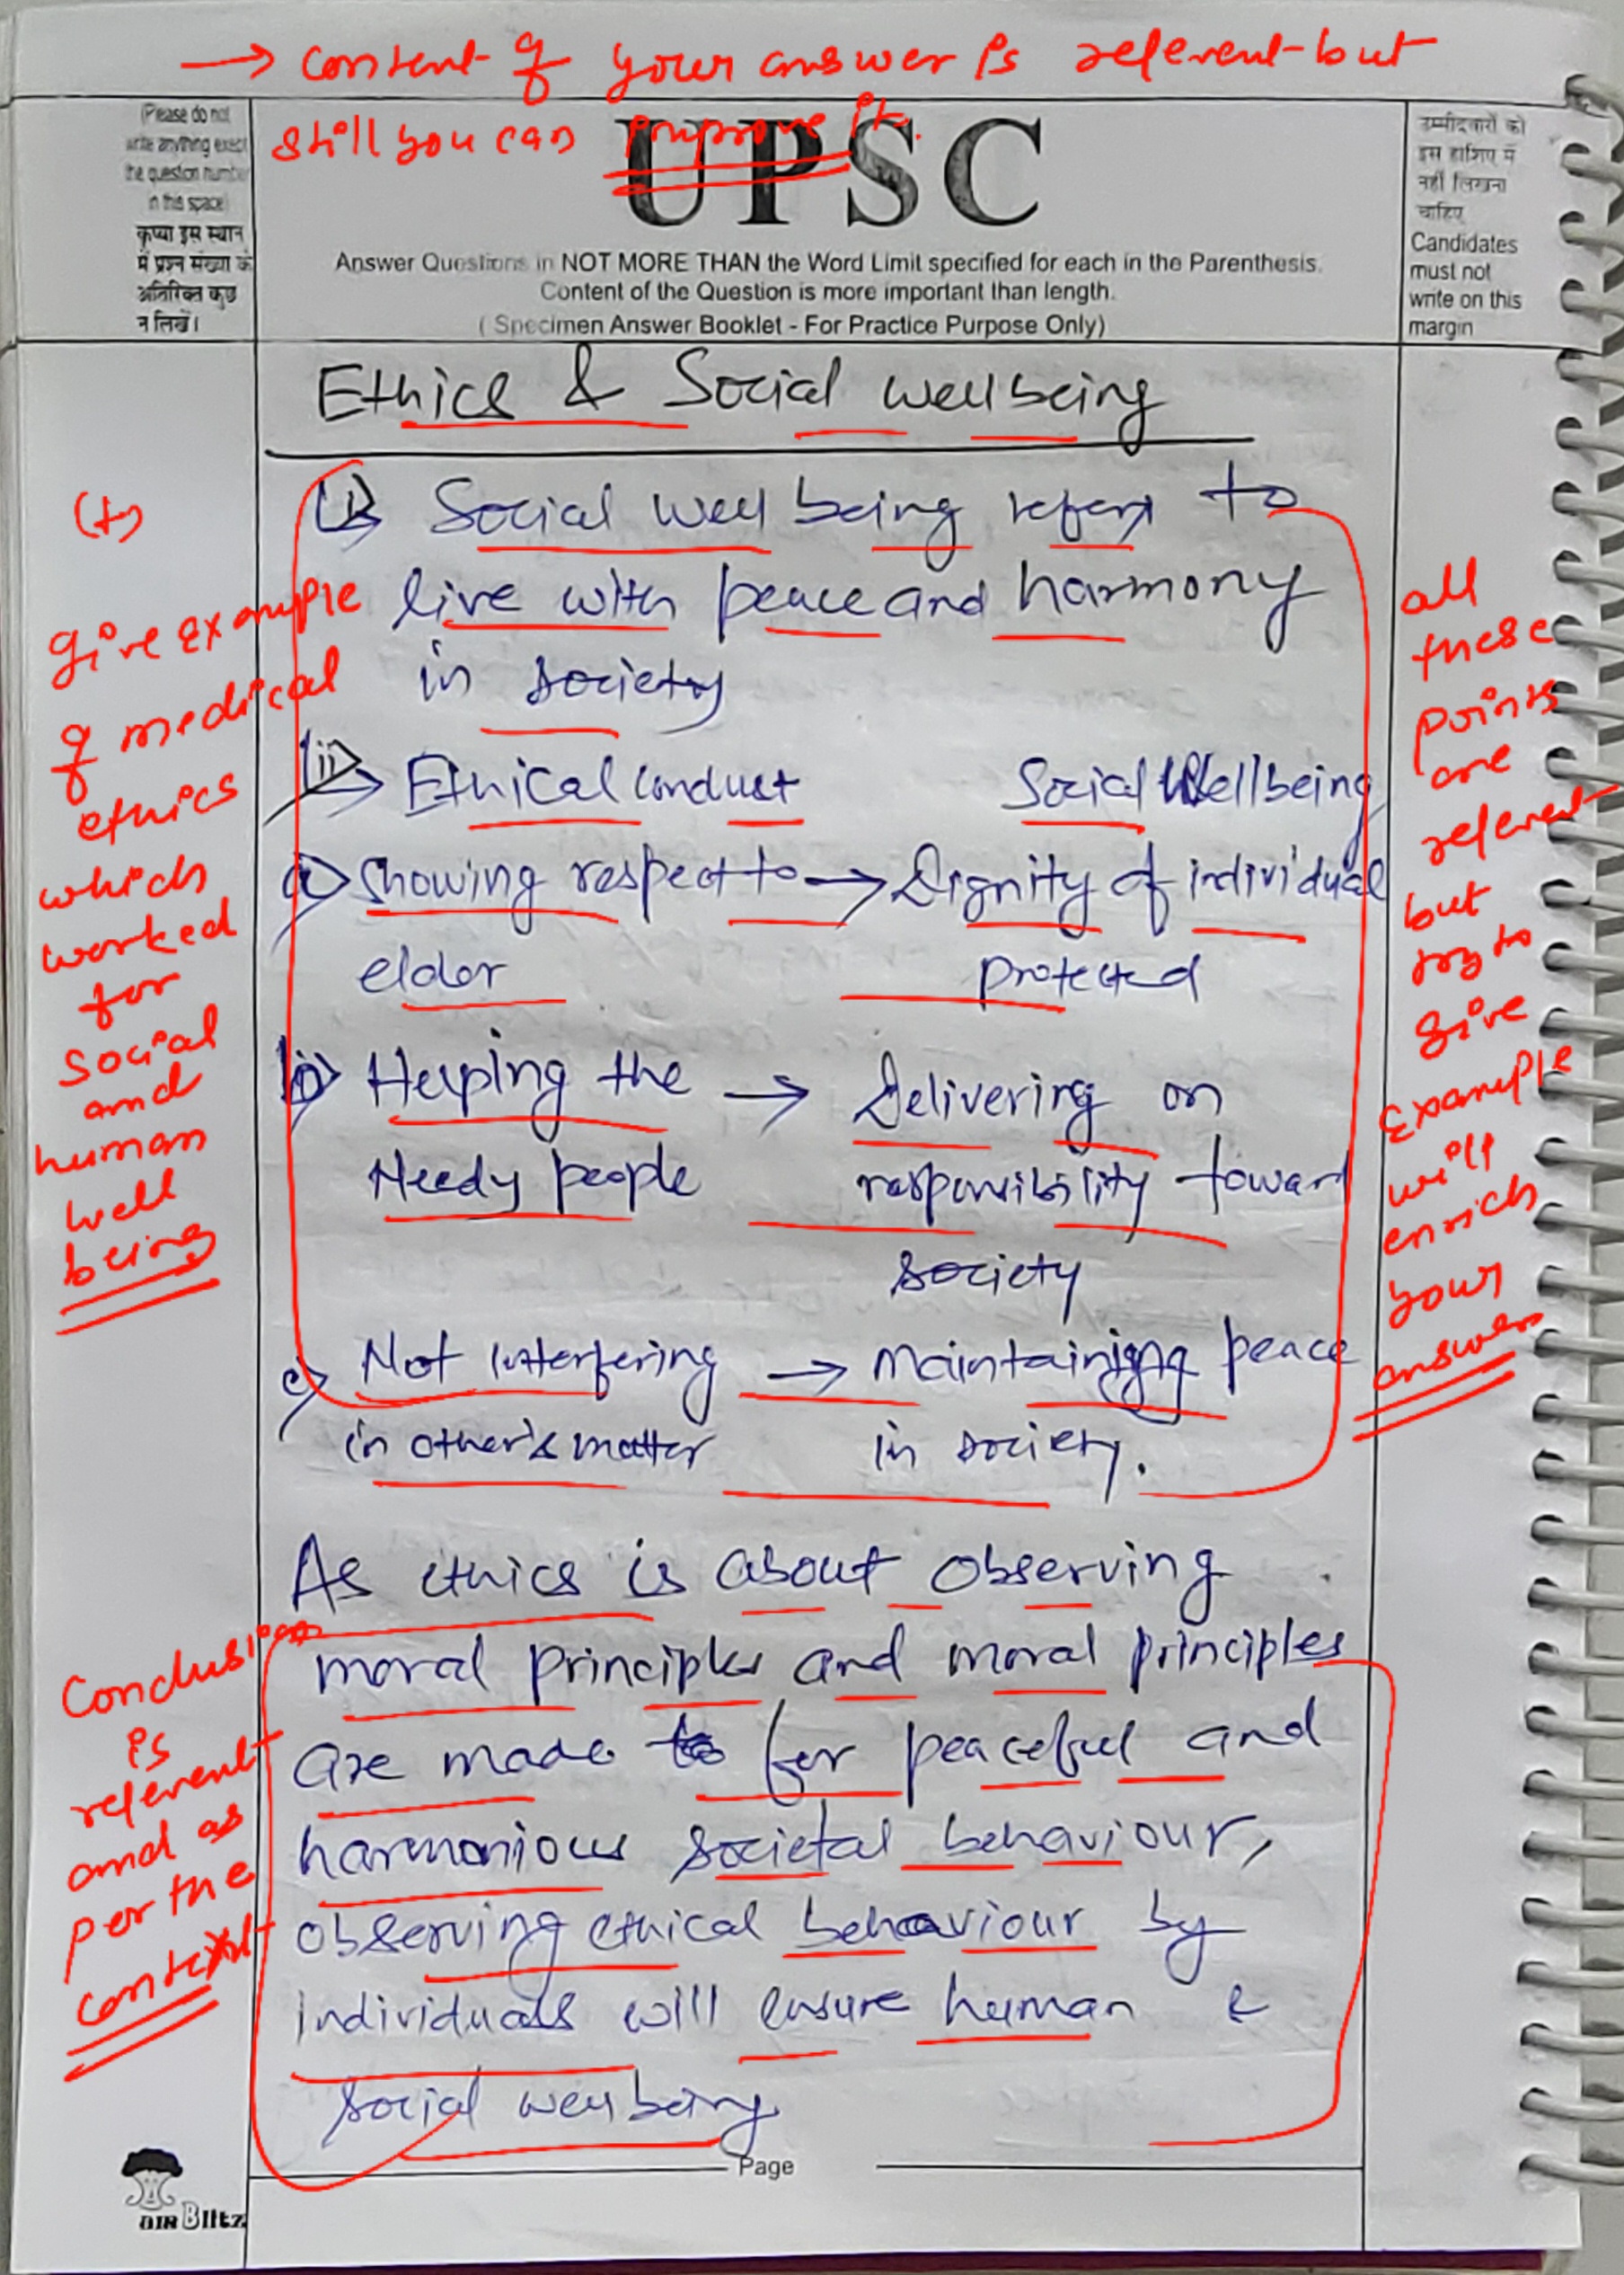 → content of your answer is relevent but
still you can improve it.
(Please do not
write anything except
the question number
in this space)
कृप्या इस स्थान
में प्रश्न संख्या के
अतिरिक्त कुछ
न लिखें।
UPSC
Answer Questions in NOT MORE THAN the Word Limit specified for each in the Parenthesis.
Content of the Question is more important than length.
( Specimen Answer Booklet - For Practice Purpose Only)
उम्मीदवारों को
इस हाशिए में
नहीं लिखना
चाहिए
Candidates
must not
write on this
margin
Ethics & Social wellbeing
(i) Social well being refers to
live with peace and harmony
in society
(ii) Ethical conduct Social Wellbeing
a) Showing respect to → Dignity of individual
elder protected
b) Helping the → Delivering on
Needy people responsibility toward
society
c) Not interfering → Maintaining peace
in other's matter in society.
As ethics is about observing
moral principles and moral principles
are made for peaceful and
harmonious societal behaviour,
observing ethical behaviour by
individuals will ensure human &
social wellbeing
(+)
give example
of medical
ethics
which
worked
for
social
and
human
well
being
all
these
points
are
relevent
but
try to
give
example
will
enrich
your
answer
Conclusion
is
relevent
and as
per the
context
Page
AIR Blitz